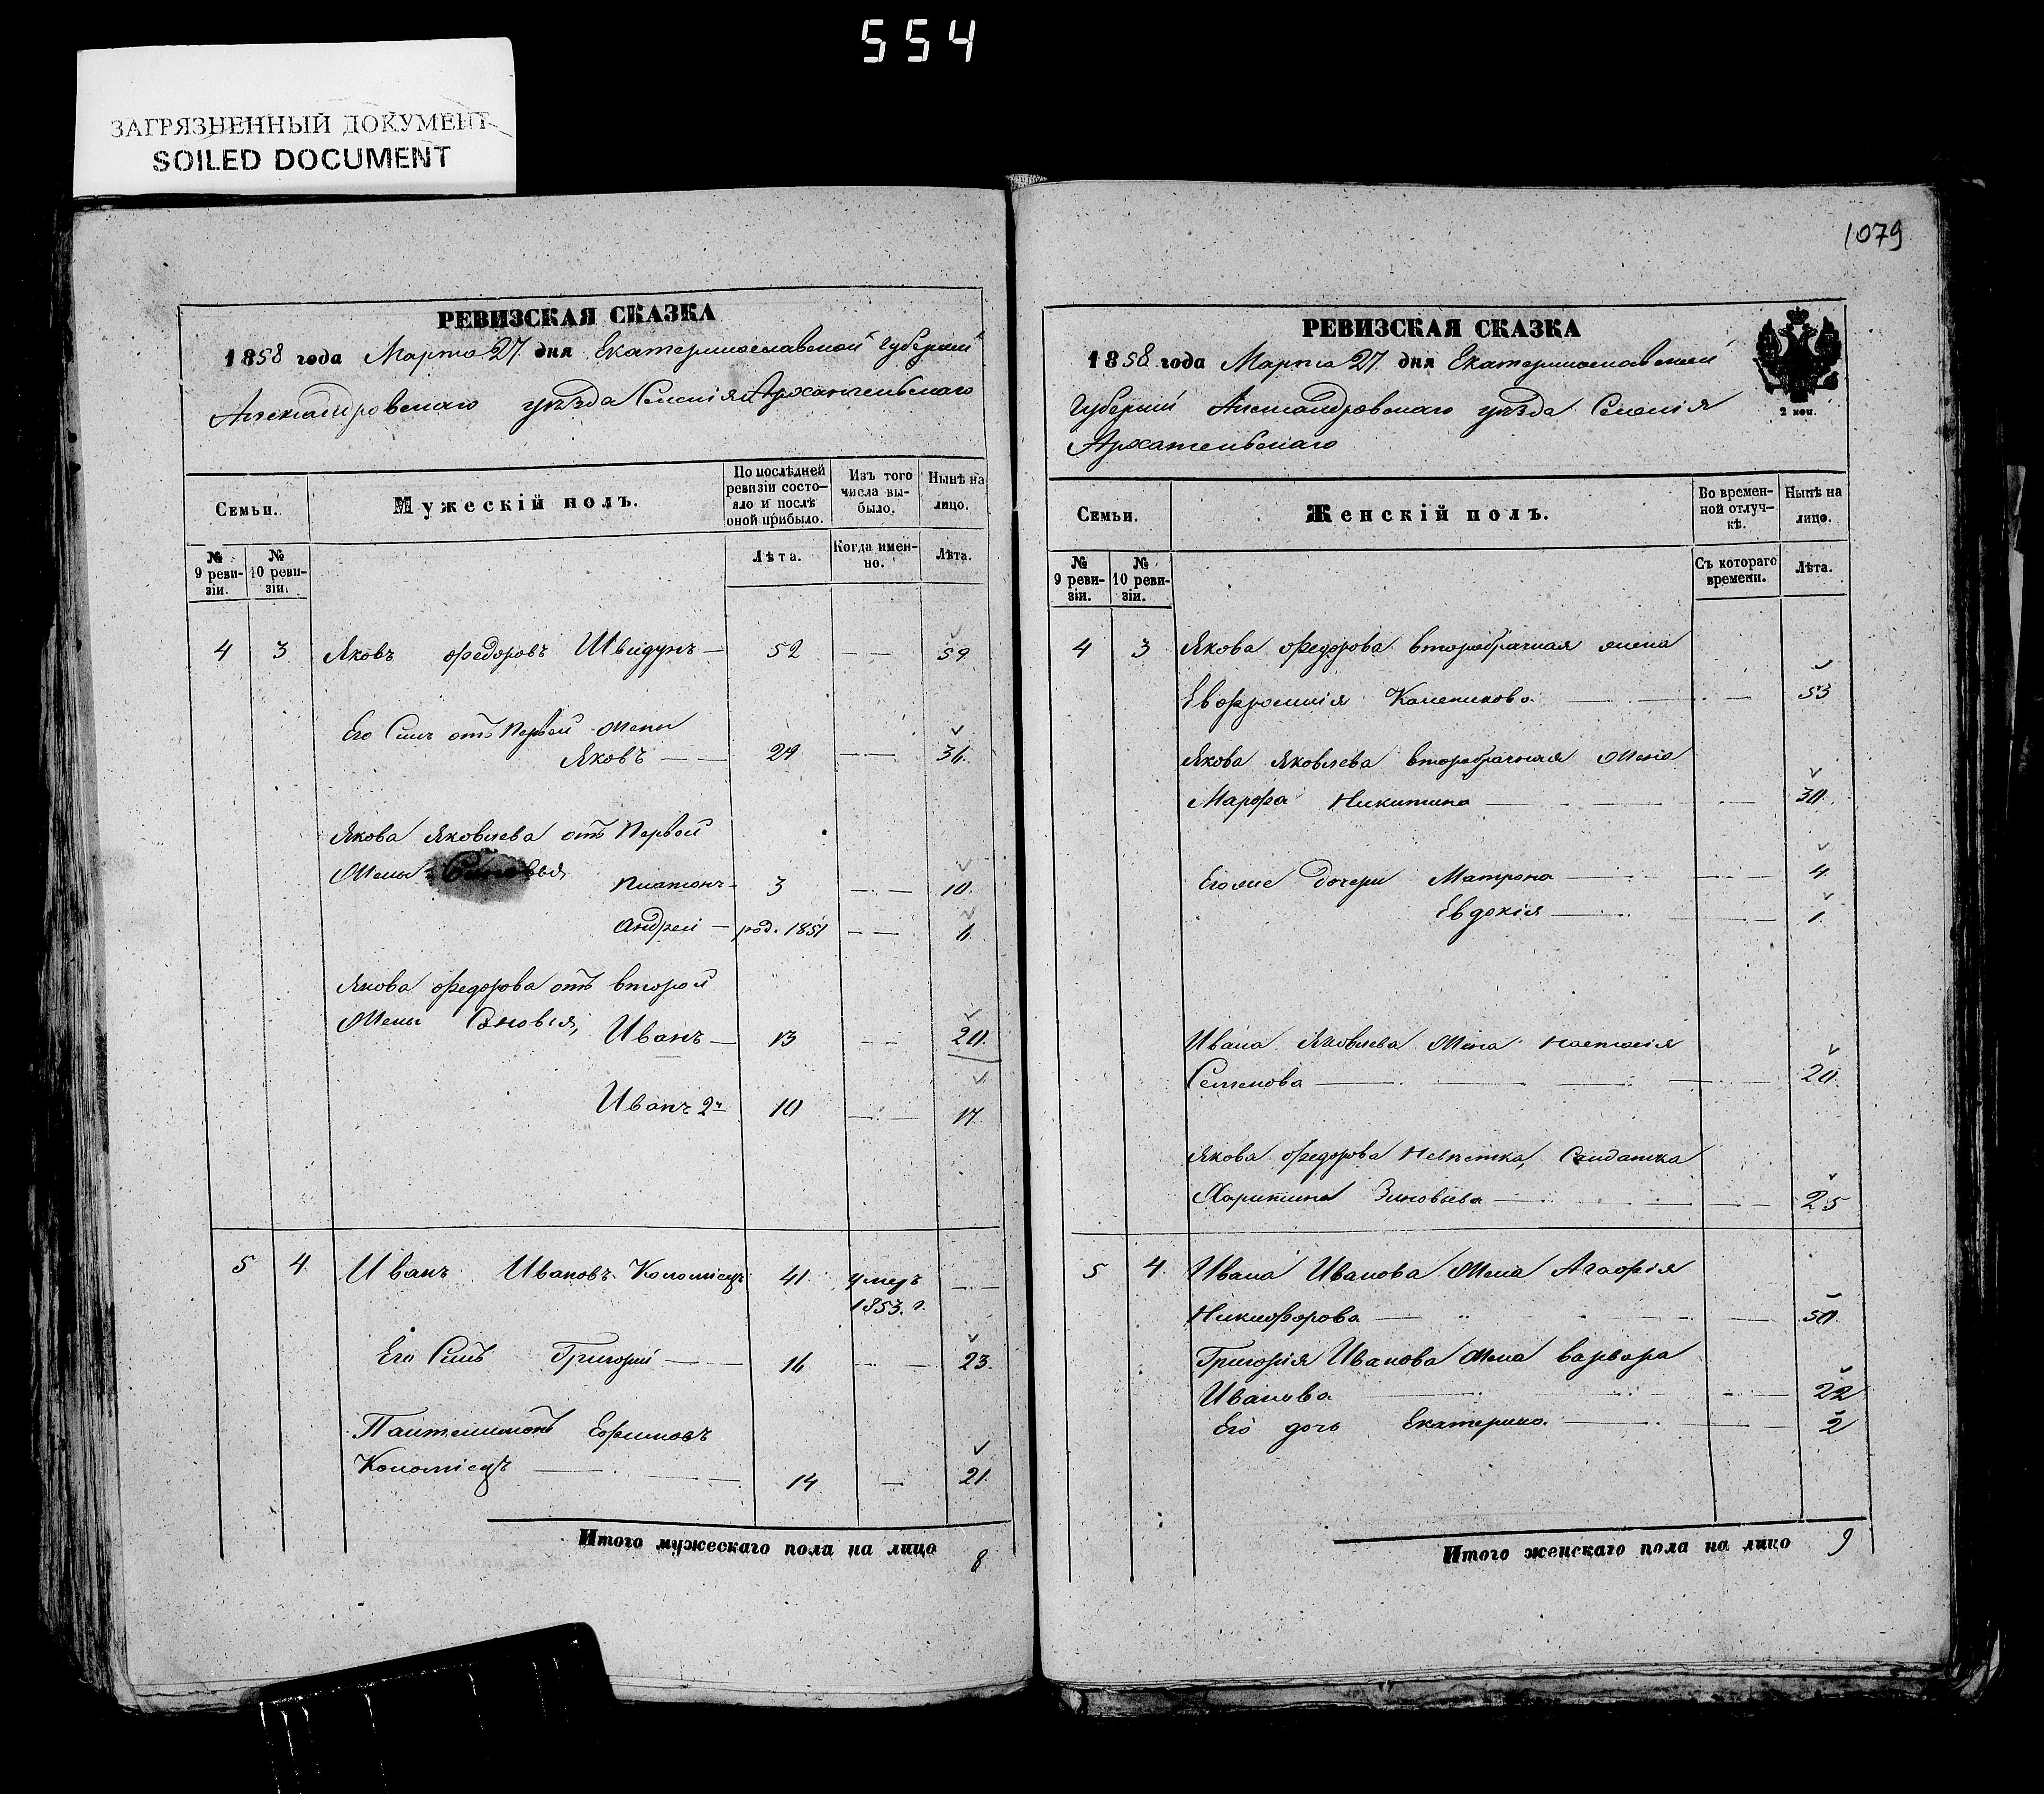 554
ЗАГРЯЗНЕННЫЙ ДОКУМЕНТ
SOILED DOCUMENT
РЕВИЗСКАЯ СКАЗКА
1858 года Марта 27 дня Екатеринославской Губерніи
Александровскаго уѣзда Селенія Архангельскаго
Семьи.
Мужескій полъ.
По послѣдней ревизіи состо-
яло и послѣ оной прибыло.
Изъ того числа вы-
было.
Нынѣ на лицо.
№ 9 реви-
зіи.
№ 10 реви-
зіи.
Лѣта.
Когда имен-
но.
Лѣта.
4 3 Яковъ Федоровъ Швидунъ — 52 — — 59
Его Сынъ отъ Первой жены
Яковъ — — 29 — — 36.
Якова Яковлева отъ Первой
жены Сыновья
Платонъ — 3 — — 10.
Андрей — род. 1851 — — 6.
Якова Федорова отъ второй
жены Сыновья,
Иванъ — 13 — — 20.
Иванъ 2й 10 — — 17.
5 4. Иванъ Ивановъ Коломіецъ 41 умеръ — —
1853. г.
Его Сынъ Григорій — — 16 — — 23.
Пантелимонъ Ефимовъ
Коломіецъ — — — 14 — 21.
Итого мужескаго пола на лицо 8
1079
РЕВИЗСКАЯ СКАЗКА
1858 года Марта 27 дня Екатеринославской
Губерніи Александровскаго уѣзда Селенія
Архангельскаго
2 коп.
Семьи.
Женскій полъ.
Во времен-
ной отлуч-
кѣ.
Нынѣ на лицо.
№ 9 реви-
зіи.
№ 10 реви-
зіи.
Съ котораго времени.
Лѣта.
4 3 Якова Федорова второбрачная жена
Евфросинія — — 53
Якова Яковлева второбрачная жена
Марфа Никитина — — — 30.
Егоже дочери Матрона — — — 4.
Евдокія — — — 1.
Ивана Яковлева жена Настасія
Семенова — — — 20.
Якова Федорова Невѣстка, Салдатка
Харитина Зиновьева — — — 25
5 4. Ивана Иванова жена Агафія
Никифорова — — — 50.
Григорія Иванова жена Варвара
Иванова — — 22
Его дочь Екатерина — — — 2
Итого женскаго пола на лицо 9